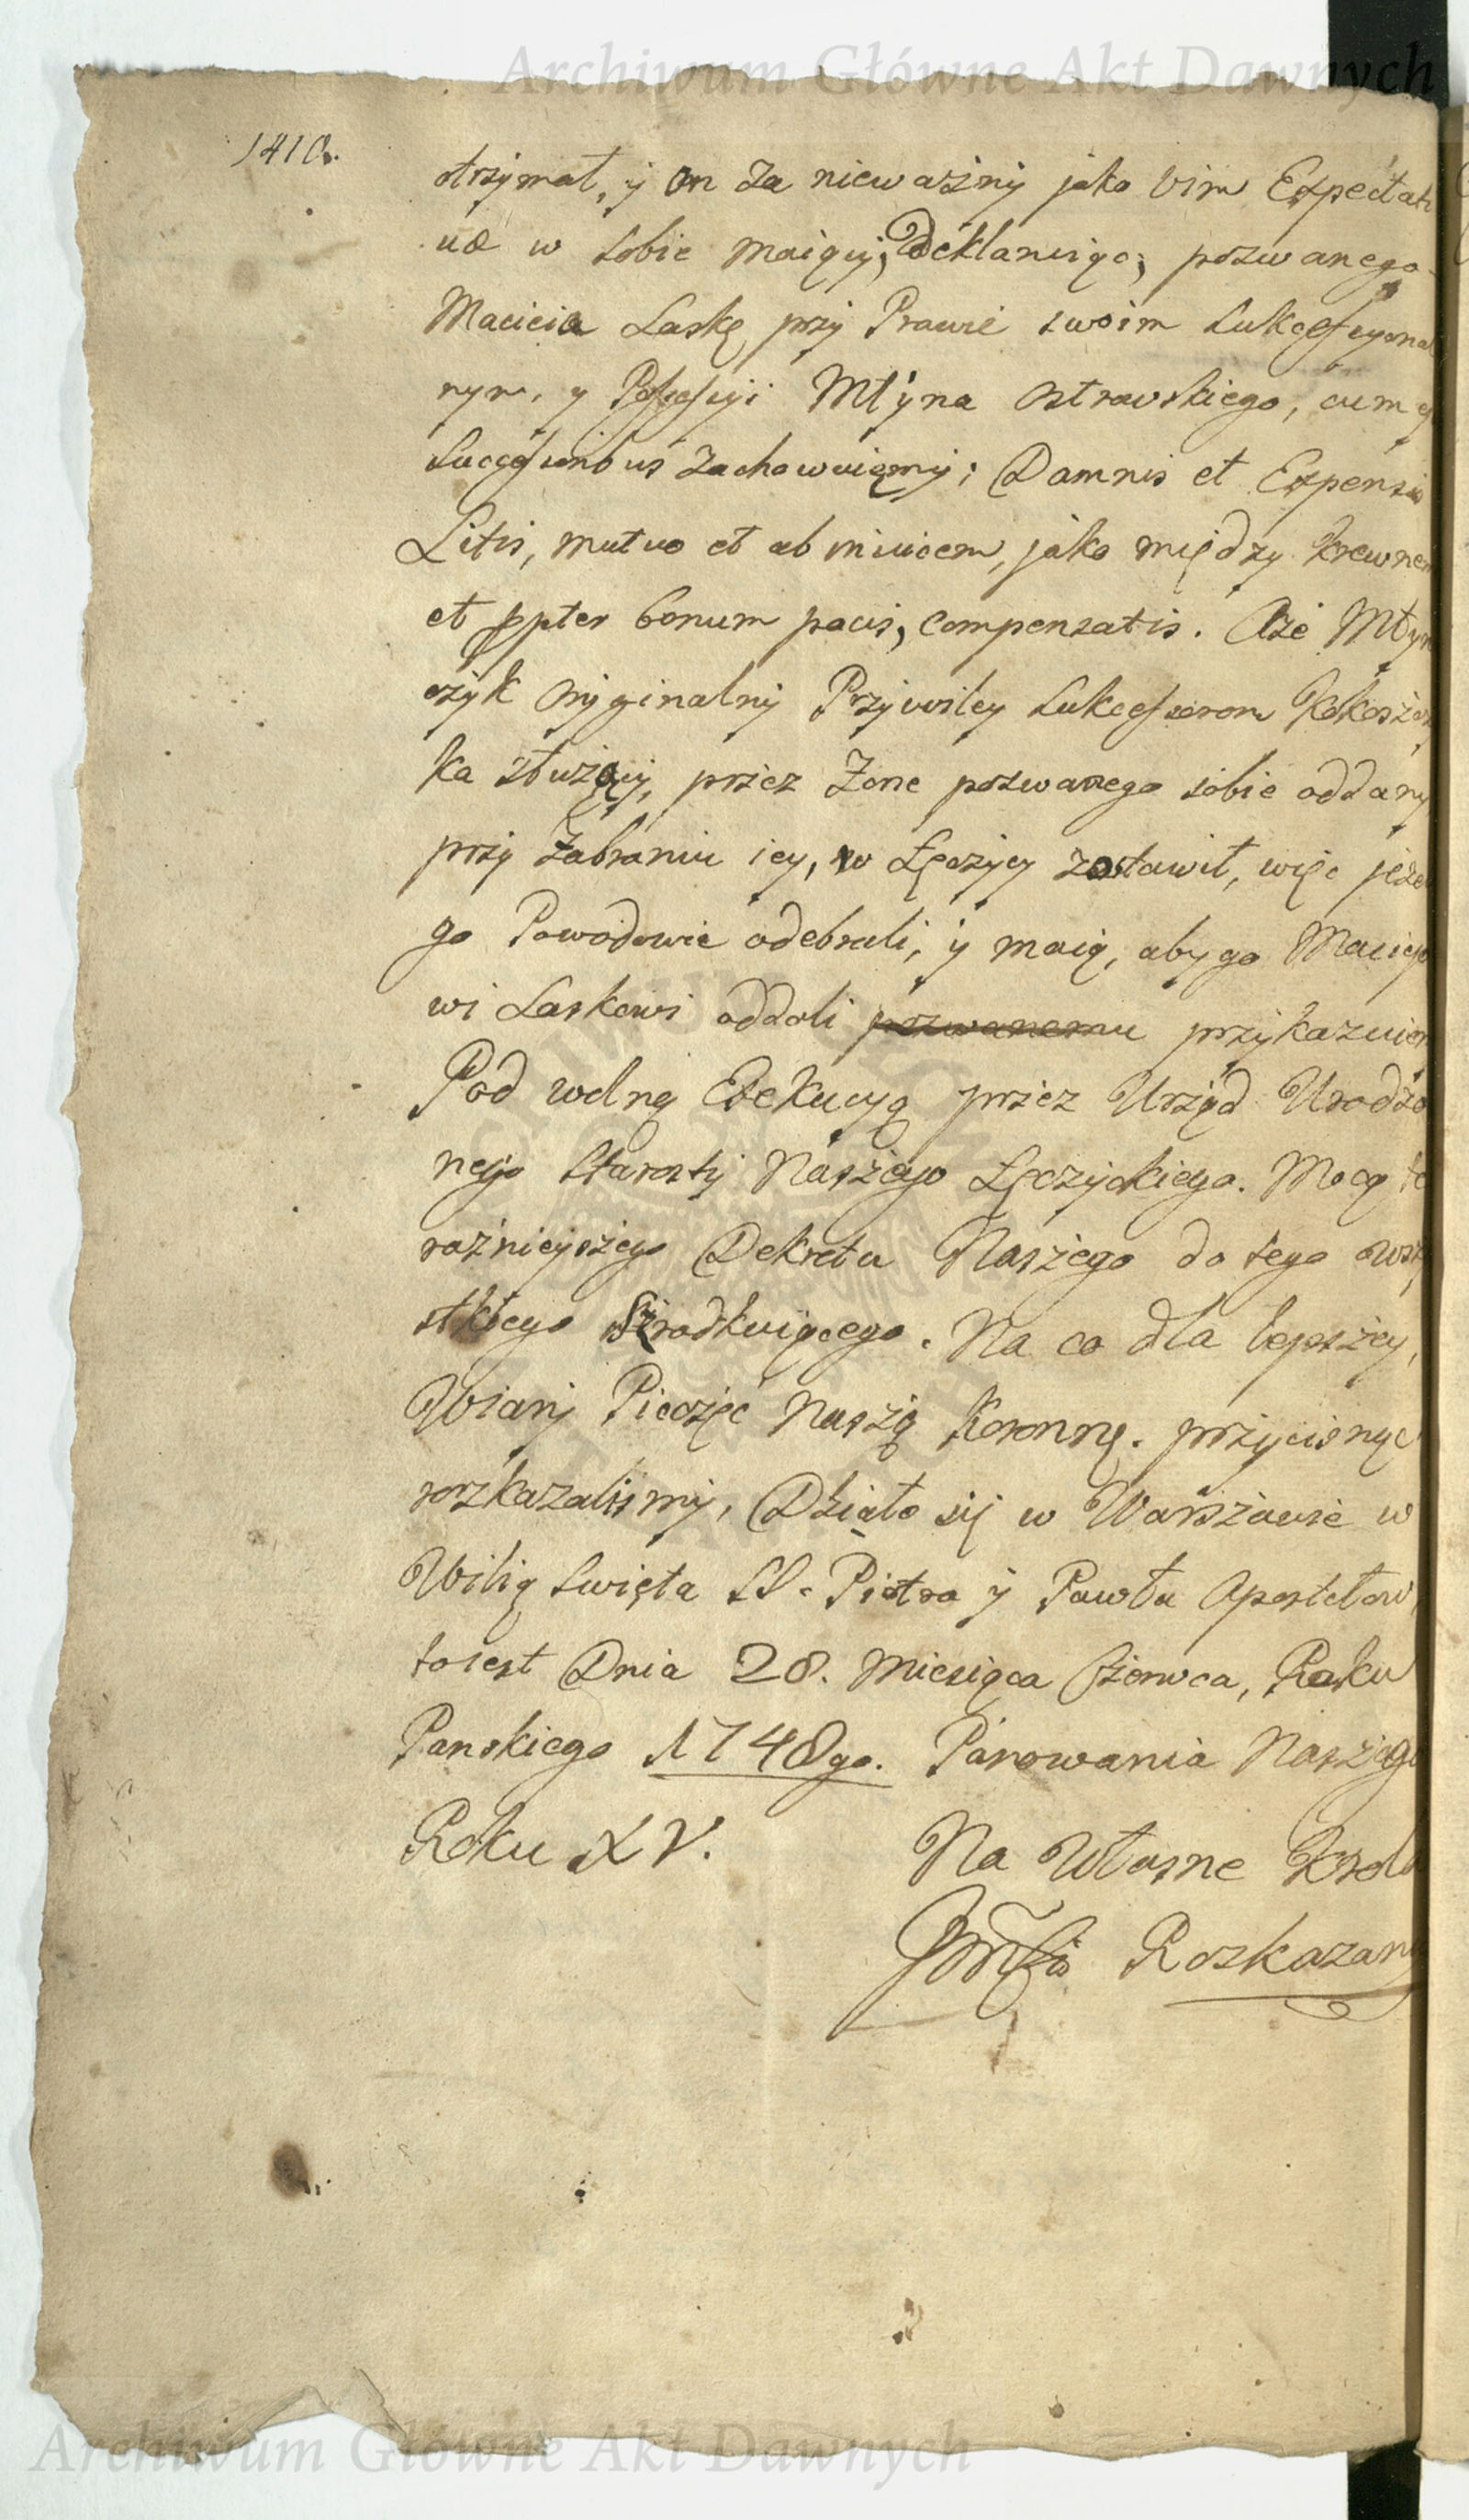 Archiwum Główne Akt Dawnych
1410.
otrzymał, y on za nieważny jako vim Expectati
uæ w sobie maiący, Deklaruiąc; pozwanego
Macieia Laskę przy Prawie swoim Sukcessyonal
nym, y Possessyi Młyna Ostrowskiego, cum
Successoribus zachowuiemy; Damnis et Expensis
Litis, mutuo et ab inuicem, jako między krewnem
et ppter bonum pacis, compensatis. Aże Młyn
czyk Oryginalny Przywiley Sukcessorom
ka służący, przez Zone pozwanego sobie oddany
przy Zabraniu iey, w Łęczycy zostawił, więc jeże
go Powodowie odebrali, y maią, aby go Macieio
wi Laskowi oddali pozwanemu przykazuiem
Pod wolną Exekucyą przez Urząd Urodzo
nego Starosty Naszego Łęczyckiego. Mocą te
raźnieyszego Dekretu Naszego do tego wszy
stkiego Szrodkuiącego. Na co dla lepszey,
Wiary Pieczęć Naszą Koronną. przycisnąć
rozkazalismy, Działo się w Warszawie w
Wilią Swięta SS. Piotra y Pawła Apostołow,
to iest Dnia 28. Miesiąca Czerwca, Roku
Panskiego 1748go. Panowania Naszego
Roku XV.
Na Własne Krola
JMSci Roskazany
Archiwum Główne Akt Dawnych